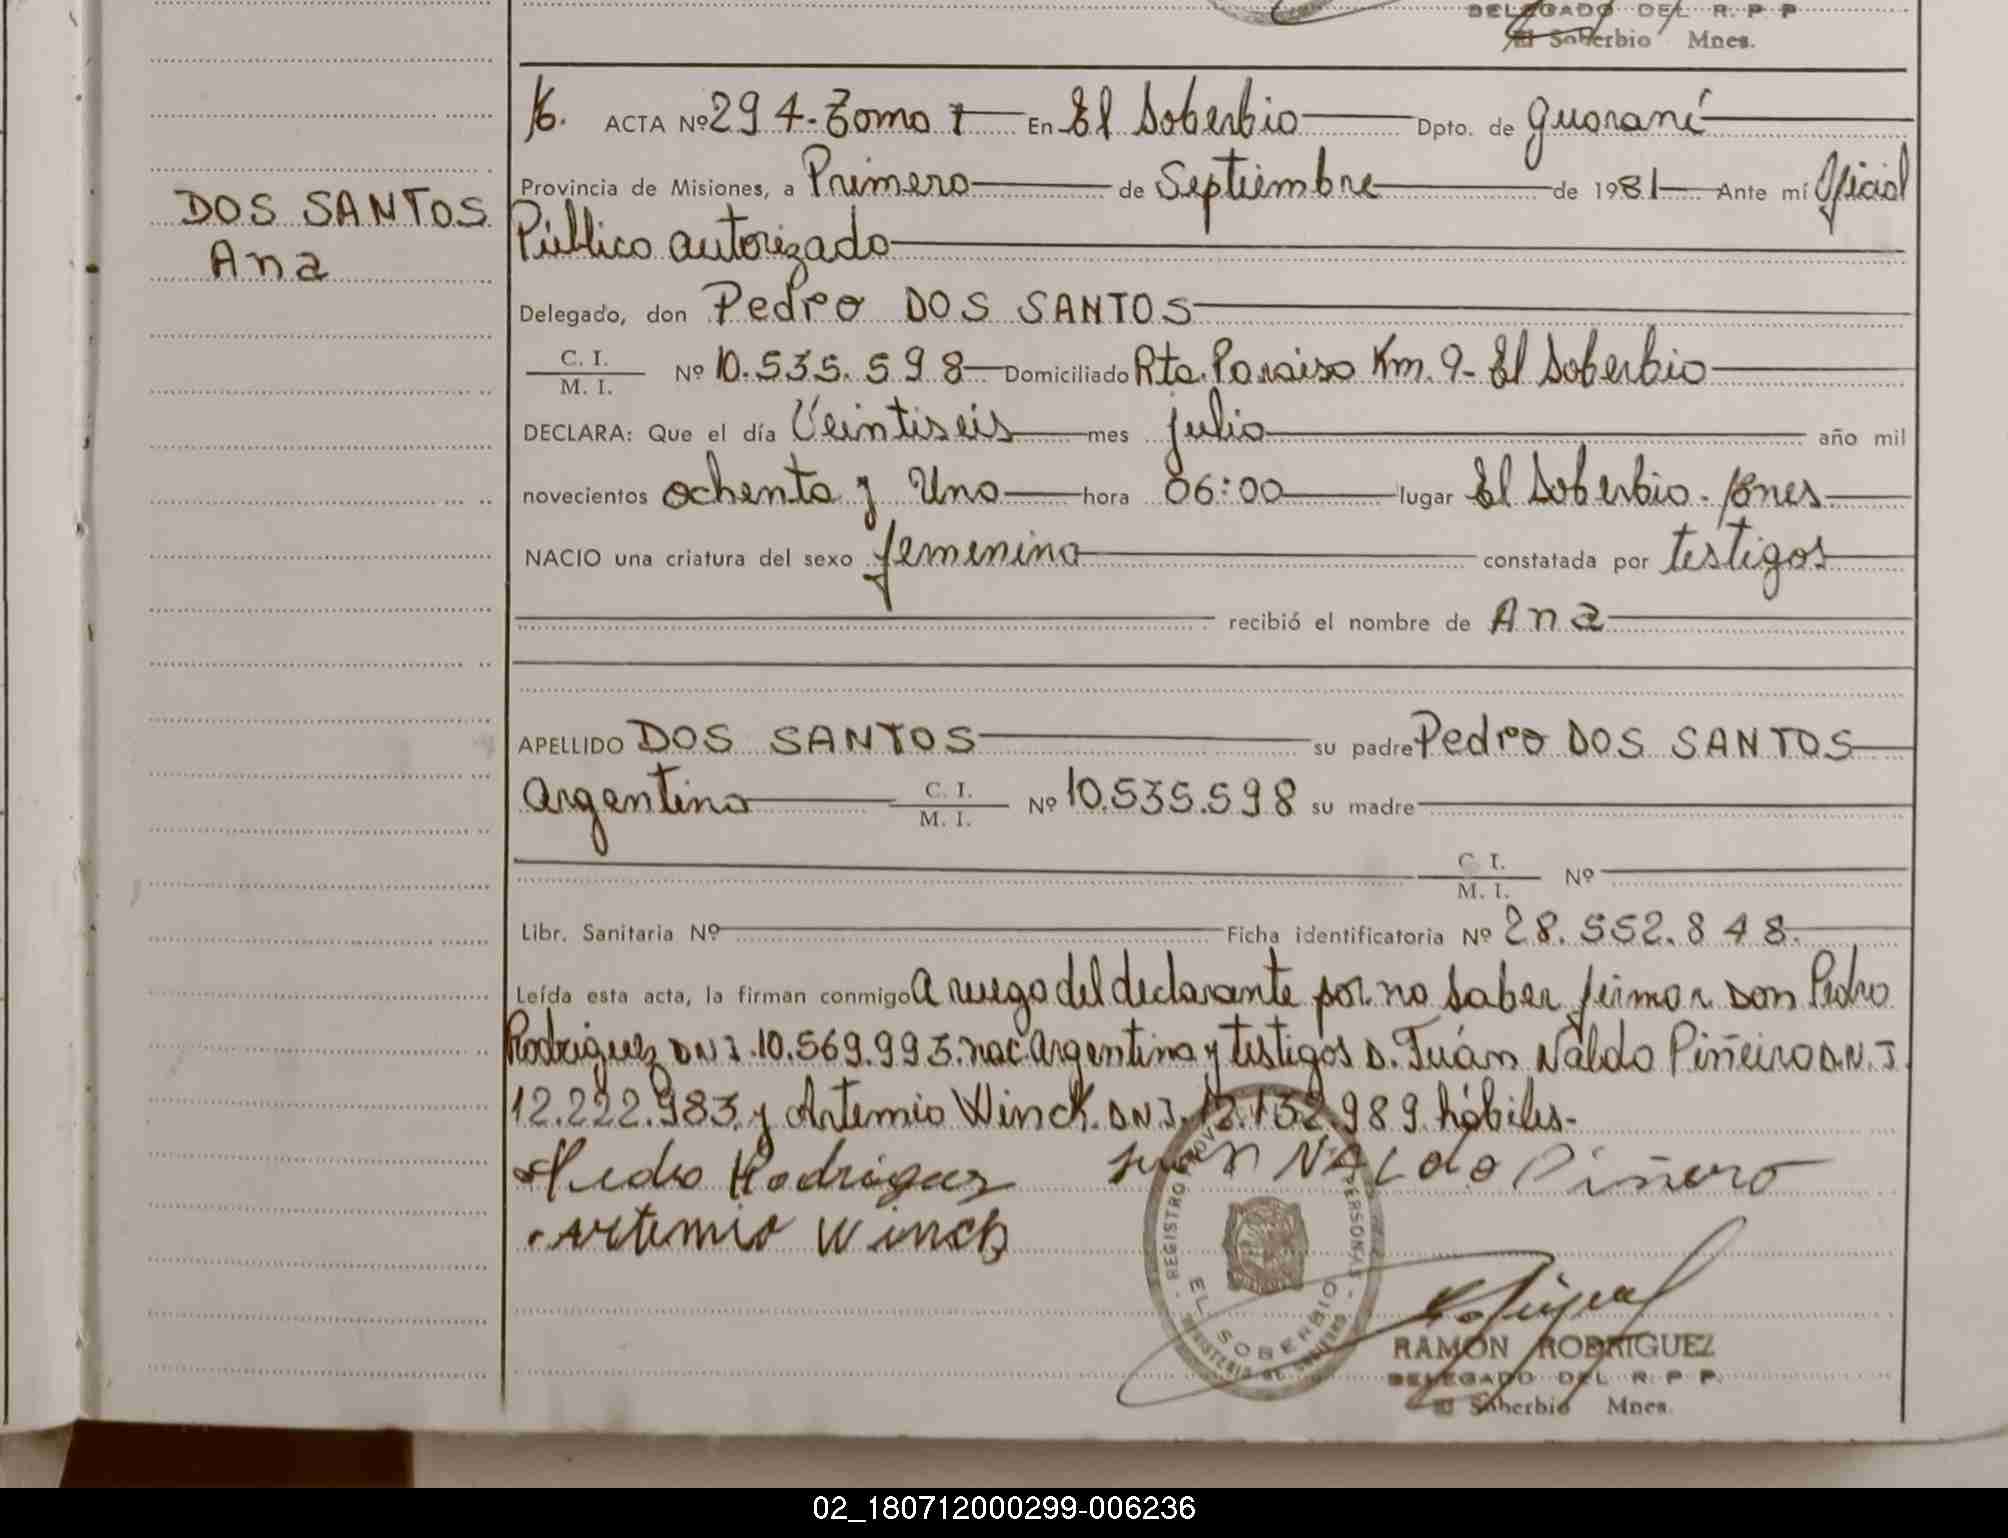 DELEGADO DEL R. P. P
El Soberbio Mnes.
ACTA Nº 294. Tomo 1 En El Soberbio Dpto. de Guaraní
Provincia de Misiones, a Primero de Septiembre de 1981 Ante mí Oficial
DOS SANTOS
Ana
Público autorizado
Delegado, don Pedro DOS SANTOS
C. I.
M. I. Nº 10.535.598 Domiciliado Rta. Paraiso Km. 9- El Soberbio
DECLARA: Que el día Veintiseis mes julio año mil
novecientos ochenta y Uno hora 06:00 lugar El Soberbio.
NACIO una criatura del sexo femenino constatada por testigos
recibió el nombre de Ana
APELLIDO DOS SANTOS su padre Pedro DOS SANTOS
Argentino C. I.
M. I. Nº 10.535.598 su madre
C. I.
M. I. Nº
Libr. Sanitaria Nº Ficha identificatoria Nº 28.552.848.
Leída esta acta, la firman conmigo A ruego del declarante por no saber firmar Don Pedro
Rodriguez DNI. 10.569.993. nac. Argentino y testigos D. Juán Naldo Piñeiro D.N.I
12.222.983. y Artemio Winck. DNI. 13.132.989. hábiles.-
Pedro Rodriguez Juan NALdo Piñero
Artemio Winck
REGISTRO PROV. PERSONAS
EL SOBERBIO
MINISTERIO DE GOBIERNO
RAMON RODRIGUEZ
DELEGADO DEL R. P. P.
El Soberbio Mnes.
02_180712000299-006236